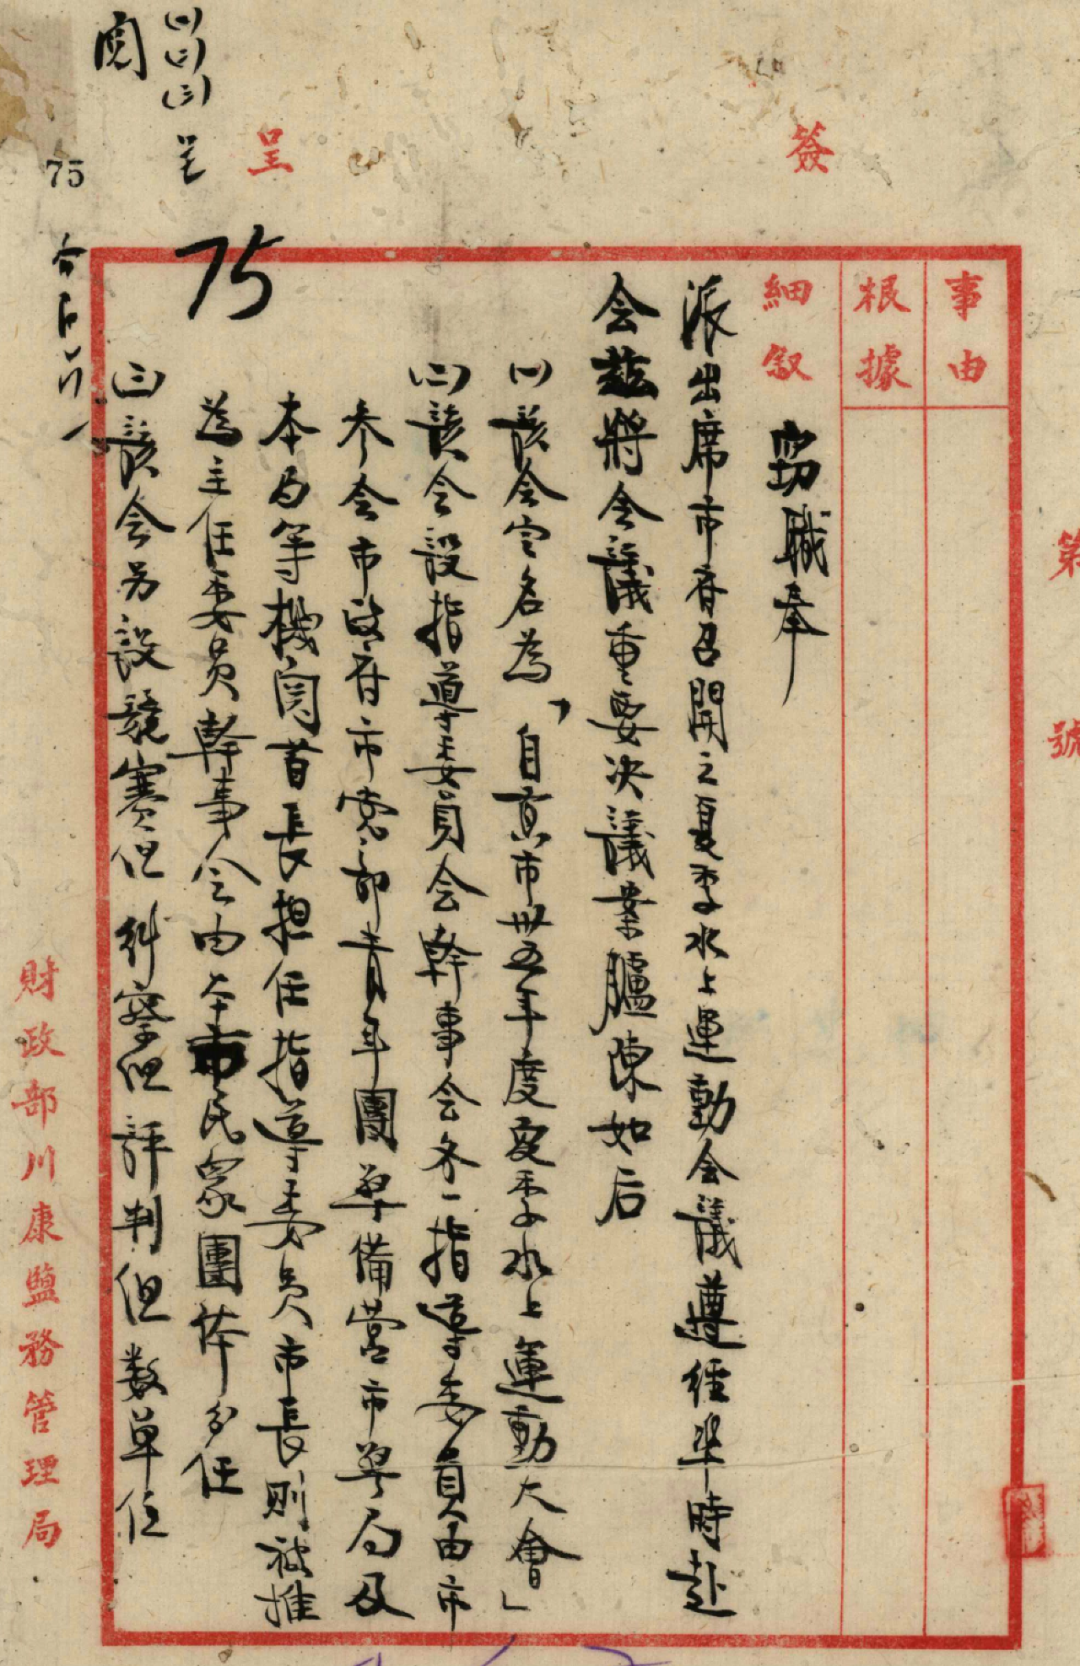 簽呈
第 號
事由
根據
細敘
竊職奉
派出席市府召開之夏季水上運動會議遵經準時赴
会茲將会議重要决議案臚陳如后
(一)該会定名為「自貢市卅五年度夏季水上運動大會」
(二)該会設指導委員会幹事会各一指導委員由市
参会市政府市黨部青年團軍備營市警局及
本局等機關首長担任指導委員市長則被推
為主任委員幹事会由本市民眾團体分任
(三)該会另設競賽但糾察但評判但数單位
75
(一)(二)(三)呈
閱
75
財政部川康鹽務管理局